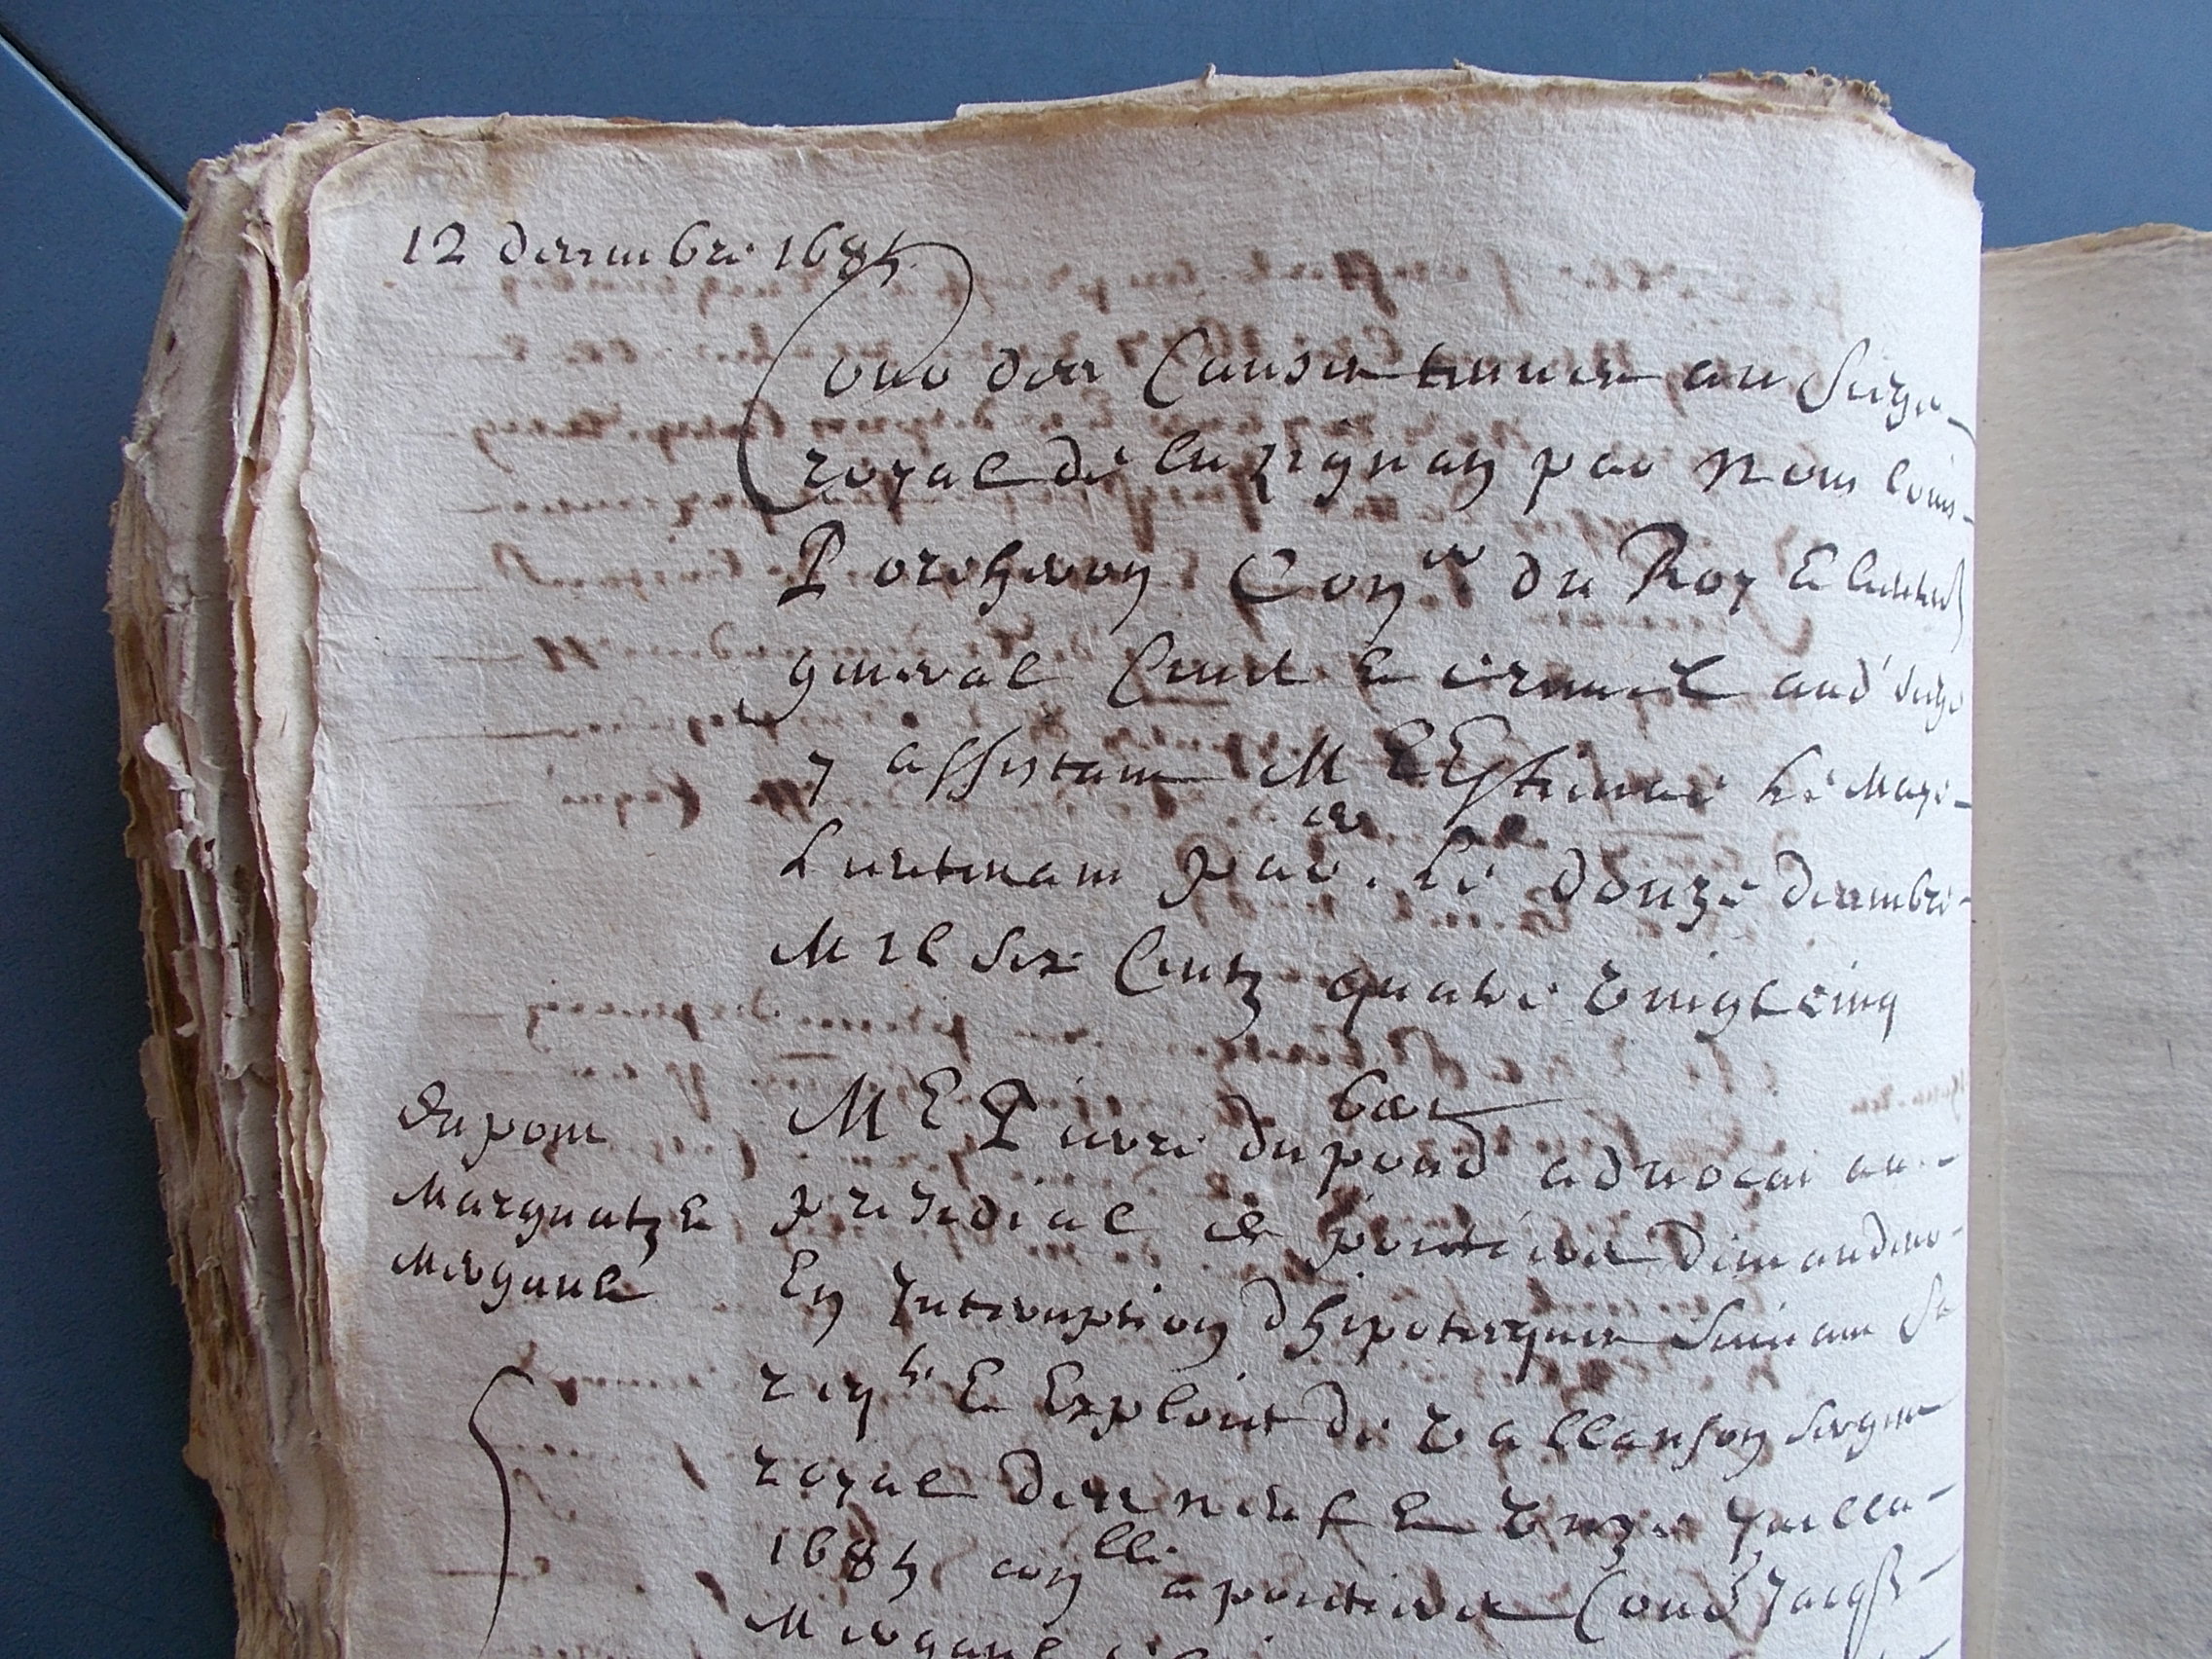 12 decembre 1685
Cour des Causes tenues au Siege
royal de luzignan par Nous louis
Porcheron Con.er du Roy & lieuten.t
general Civil & criminel aud' siege
y assistant M E Estienne Le Maye
Lieutenant par.er Le douze decembre
Mil Six Centz quatre vingt cinq
Dupont
Marguatz &
Mergault
M E Pierre dupond advocat au
presidial et pontiers demandeur
En Interruption d'hipotecques Suivant Sa
reqte & Exploit de Vallanson sergent
royal des neuf & Unze Juillet
1685 conlle a pontiers Cond Jacqs
Mergault